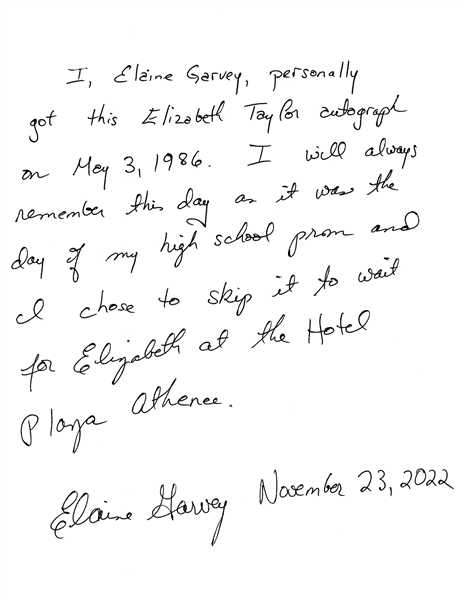 I, Elaine Garvey, personally
got this Elizabeth Taylor autograph
on May 3, 1986. I will always
remember this day as it was the
day of my high school prom and
I chose to skip it to wait
for Elizabeth at the Hotel
Plaza Athenee.
Elaine Garvey November 23, 2022